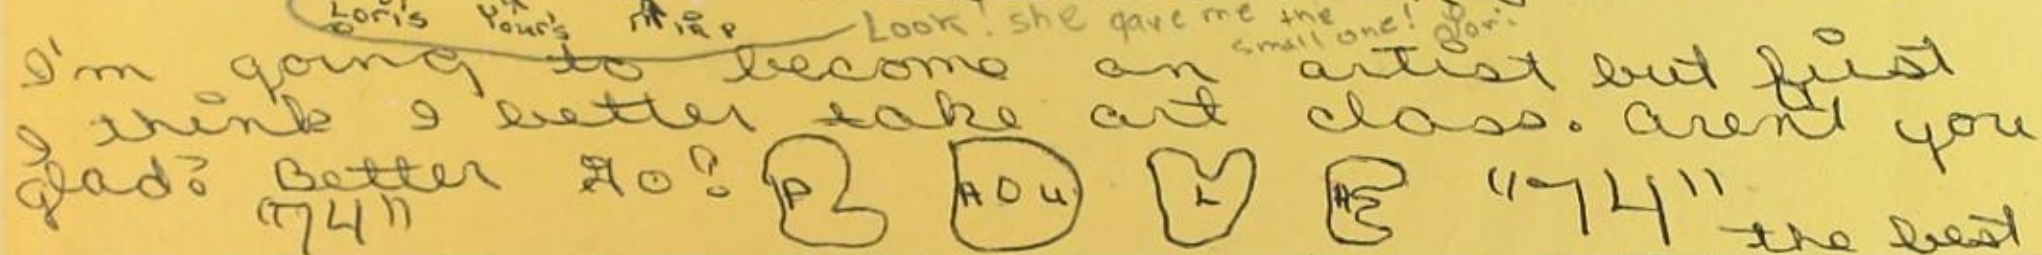 Lori's Your's Mine Look! she gave me the small one! Lori
I'm going to become an artist but first
I think I better take art class. Aren't you
glad? Better Go! L O V E "74"
"74" the best